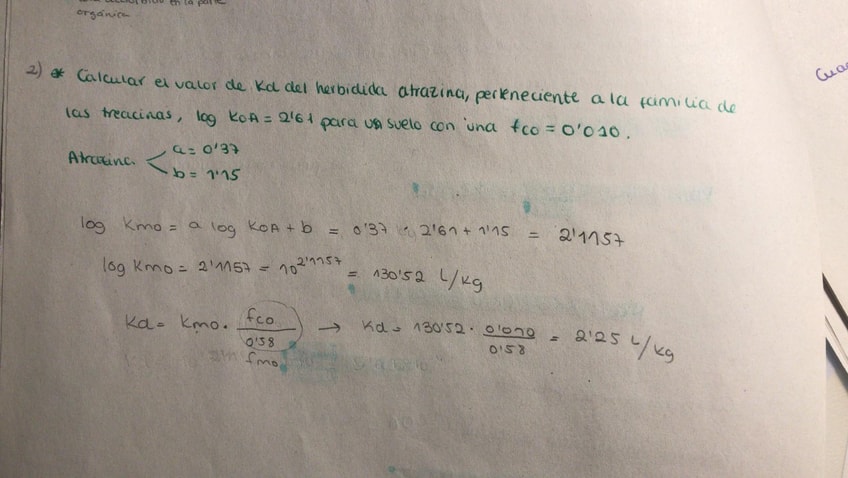 en la parte
orgánica.
2) * Calcular el valor de Kd del herbidida atrazina, perteneciente a la familia de
las treacinas, log KOA = 2'61 para un suelo con una fco = 0'010.
Atrazina < a = 0'37
b = 1'15
log Kmo = a log KOA + b = 0'37 · 2'61 + 1'15 = 2'1157
log Kmo = 2'1157 = 10^2'1157 = 130'52 L/kg
Kd = Kmo · fco/0'58 → Kd = 130'52 · 0'010/0'58 = 2'25 L/kg
fmo
Cua